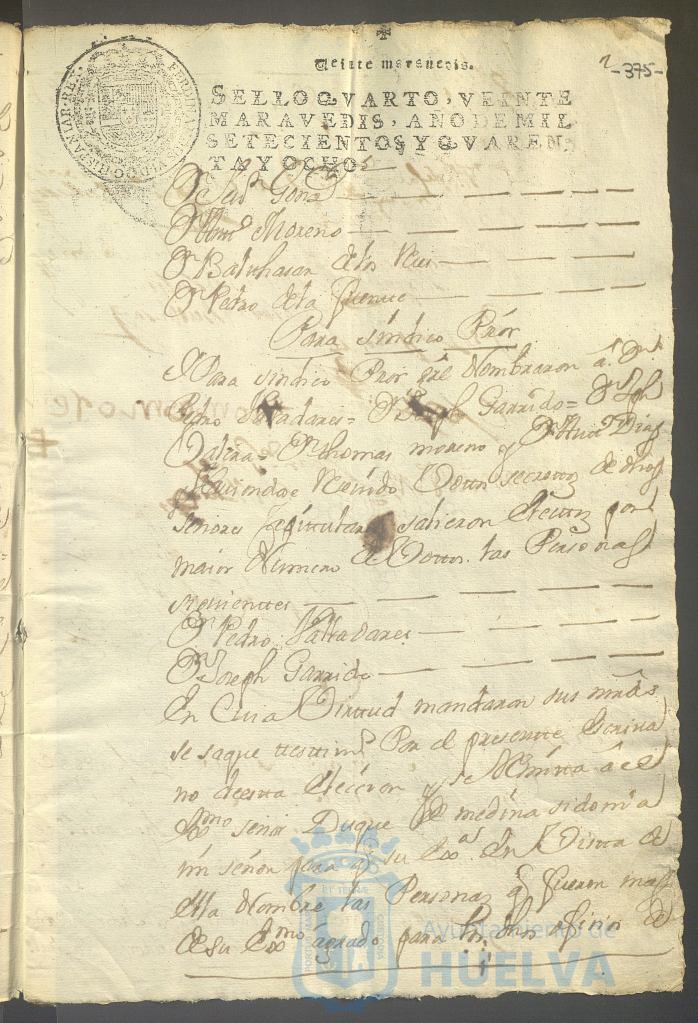 Veinte maravedis.
2 -375-
SELLO QVARTO, VEINTE
MARAVEDIS, AÑO DE MIL
SETECIENTOS Y QVAREN-
TA Y OCHO
Dn Moreno
Dn Balthasar de los Reies
Dn Pedro de la Fuente
Para sindico Pror
Para sindico Pror nombraron a Dn
Pedro Valladares = Dn Joseph Garrido = Dn
Dn thomas moreno y Dn Diaz
haviendose Votos secretos de dhos
señores Capitulares salieron electos por
maior Numero de Votos las Personas
siguientes
Dn Pedro Valladares
Dn Joseph Garrido
En Cuia Virtud mandaron sus mrds
se saque testimo Por el presente Escriva
no de esta elección y se Remita a el
Exmo señor Duque de medina sidonia
mi señor para q su Exa en Vista de
ella Nombre las Personas q fueren mas
de su Exmo agrado para los dhos ofizios de
Ayuntamiento de
HUELVA